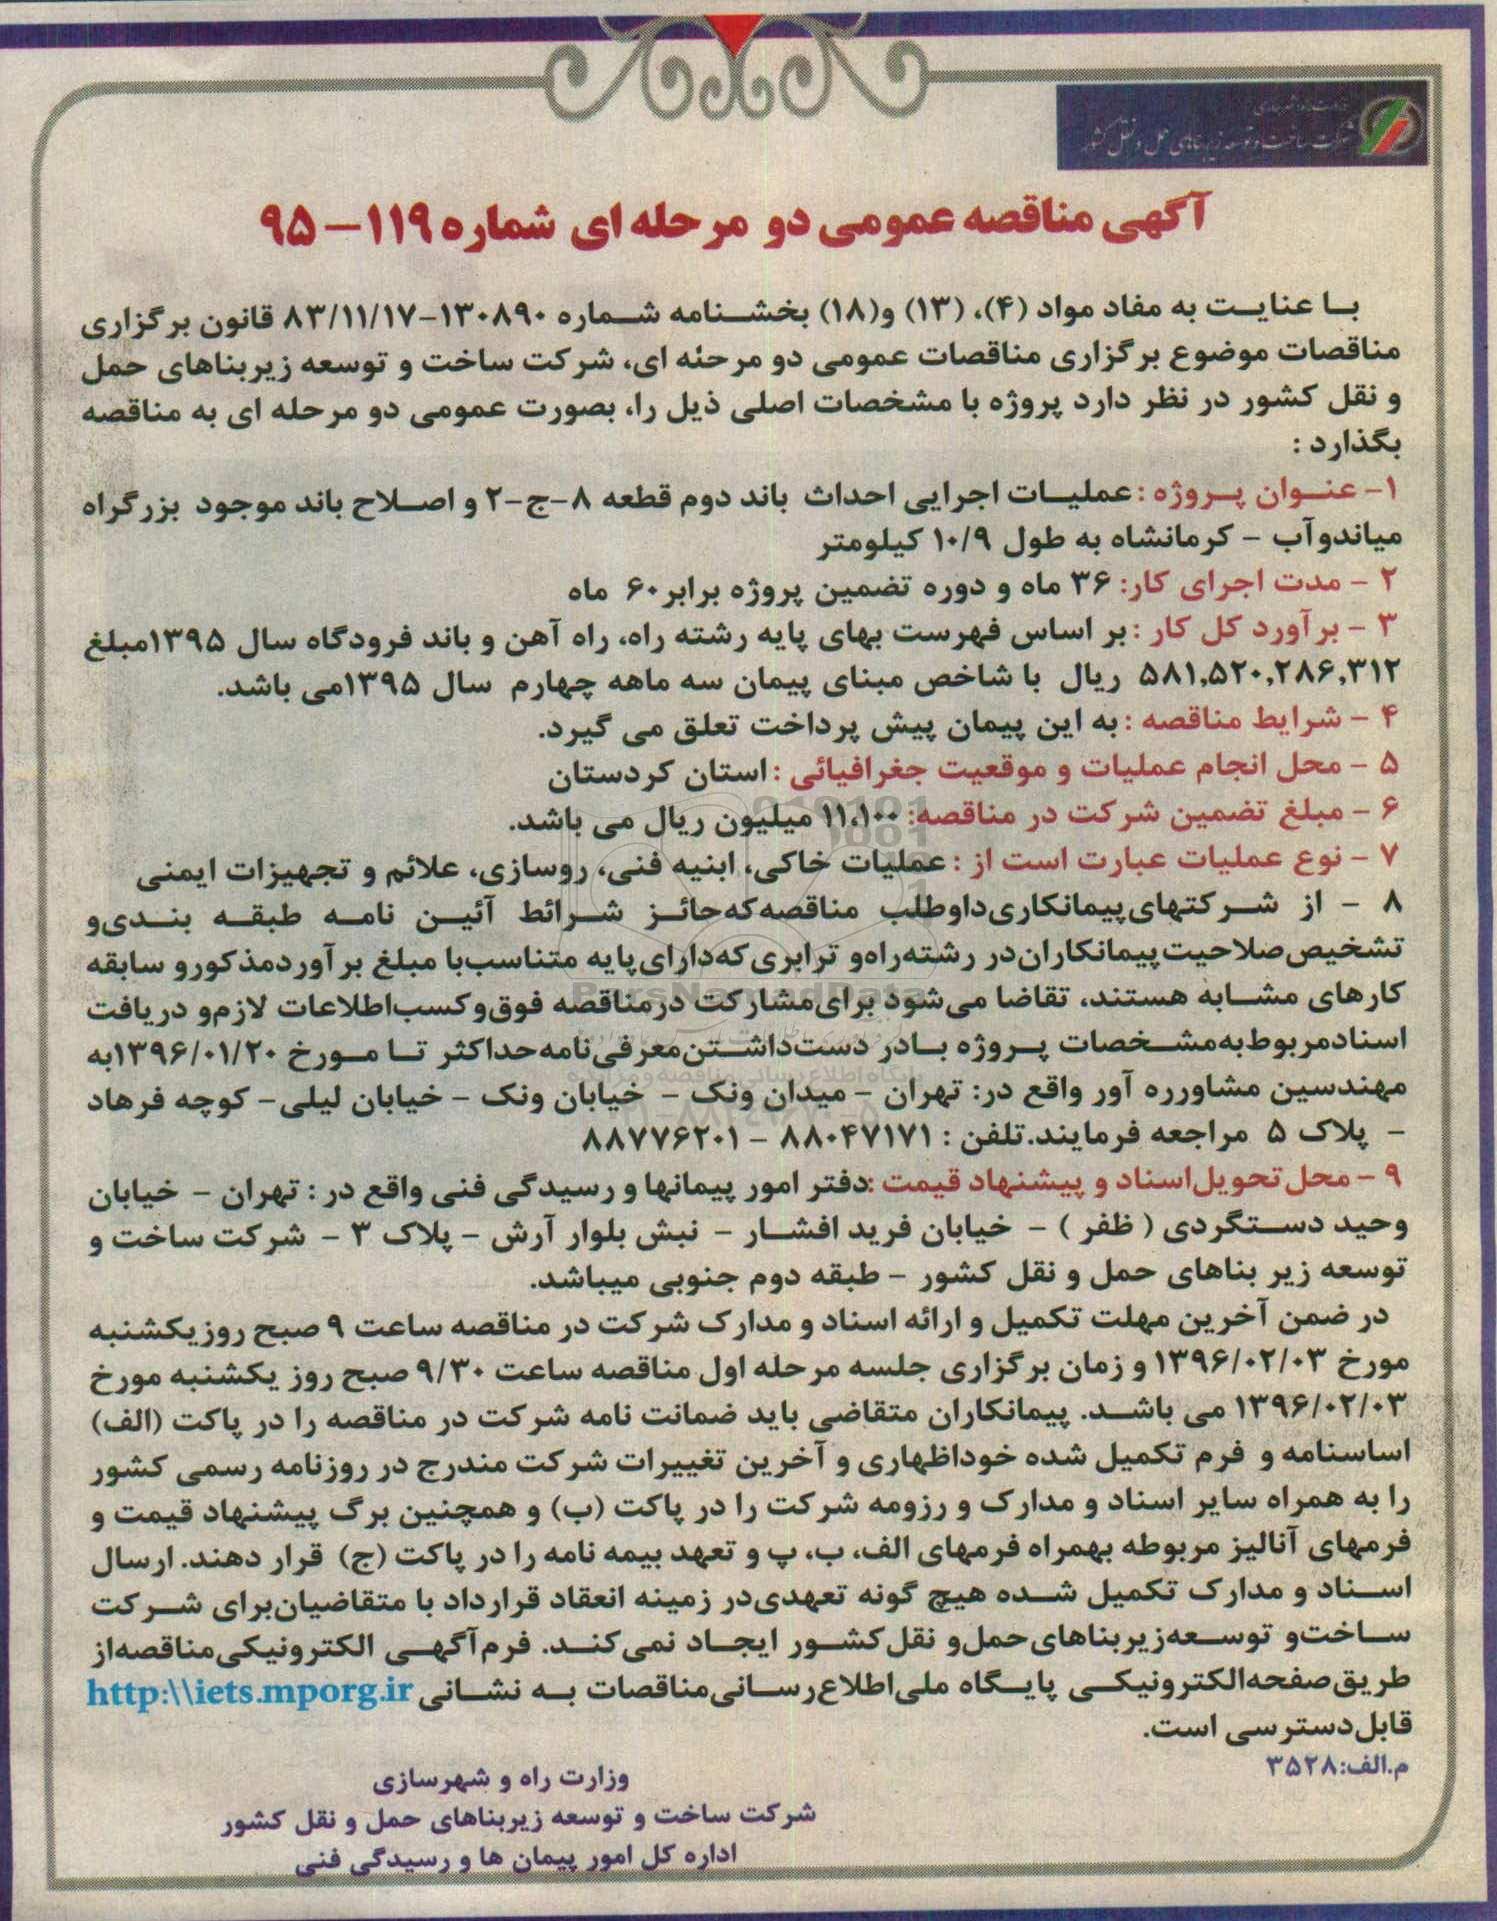 وزارت راه و شهرسازی
شرکت ساخت و توسعه زیربناهای حمل و نقل کشور
آگهی مناقصه عمومی دو مرحله ای شماره ۱۱۹ – ۹۵
با عنایت به مفاد مواد (۴)، (۱۳) و(۱۸) بخشنامه شماره ۱۳۰۸۹۰-۸۳/۱۱/۱۷ قانون برگزاری
مناقصات موضوع برگزاری مناقصات عمومی دو مرحله ای، شرکت ساخت و توسعه زیربناهای حمل
و نقل کشور در نظر دارد پروژه با مشخصات اصلی ذیل را، بصورت عمومی دو مرحله ای به مناقصه
بگذارد :
۱- عنوان پروژه : عملیات اجرایی احداث باند دوم قطعه ۸-ج-۲ و اصلاح باند موجود بزرگراه
میاندوآب - کرمانشاه به طول ۱۰/۹ کیلومتر
۲ - مدت اجرای کار: ۳۶ ماه و دوره تضمین پروژه برابر ۶۰ ماه
۳ - برآورد کل کار : بر اساس فهرست بهای پایه رشته راه، راه آهن و باند فرودگاه سال ۱۳۹۵مبلغ
۵۸۱,۵۲۰,۲۸۶,۳۱۲ ریال با شاخص مبنای پیمان سه ماهه چهارم سال ۱۳۹۵می باشد.
۴ - شرایط مناقصه : به این پیمان پیش پرداخت تعلق می گیرد.
۵ - محل انجام عملیات و موقعیت جغرافیائی : استان کردستان
۶ - مبلغ تضمین شرکت در مناقصه: ۱۱،۱۰۰ میلیون ریال می باشد.
۷ - نوع عملیات عبارت است از : عملیات خاکی، ابنیه فنی، روسازی، علائم و تجهیزات ایمنی
۸ - از شرکتهای‌پیمانکاری‌داوطلب مناقصه‌که‌حائز شرائط آئین نامه طبقه بندی‌و
تشخیص‌صلاحیت‌پیمانکاران‌در رشته‌راه‌و ترابری‌که‌دارای‌پایه متناسب‌با مبلغ برآورد‌مذکور‌و سابقه
کارهای مشابه هستند، تقاضا می‌شود برای‌مشارکت درمناقصه فوق‌و‌کسب‌اطلاعات لازم‌و دریافت
اسنادمربوط‌به‌مشخصات پروژه بادر دست‌داشتن‌معرفی‌نامه‌حداکثر تا مورخ ۱۳۹۶/۰۱/۲۰به
مهندسین مشاورره آور واقع در: تهران - میدان ونک - خیابان ونک - خیابان لیلی- کوچه فرهاد
- پلاک ۵ مراجعه فرمایند.تلفن : ۸۸۰۴۷۱۷۱ - ۸۸۷۷۶۲۰۱
۹ - محل‌تحویل‌اسناد و پیشنهاد قیمت :دفتر امور پیمانها و رسیدگی فنی واقع در : تهران - خیابان
وحید دستگردی ( ظفر ) - خیابان فرید افشار - نبش بلوار آرش - پلاک ۳ - شرکت ساخت و
توسعه زیر بناهای حمل و نقل کشور - طبقه دوم جنوبی میباشد.
در ضمن آخرین مهلت تکمیل و ارائه اسناد و مدارک شرکت در مناقصه ساعت ۹ صبح روزیکشنبه
مورخ ۱۳۹۶/۰۲/۰۳ و زمان برگزاری جلسه مرحله اول مناقصه ساعت ۹/۳۰ صبح روز یکشنبه مورخ
۱۳۹۶/۰۲/۰۳ می باشد. پیمانکاران متقاضی باید ضمانت نامه شرکت در مناقصه را در پاکت (الف)
اساسنامه و فرم تکمیل شده خوداظهاری و آخرین تغییرات شرکت مندرج در روزنامه رسمی کشور
را به همراه سایر اسناد و مدارک و رزومه شرکت را در پاکت (ب) و همچنین برگ پیشنهاد قیمت و
فرمهای آنالیز مربوطه بهمراه فرمهای الف، ب، پ و تعهد بیمه نامه را در پاکت (ج) قرار دهند. ارسال
اسناد و مدارک تکمیل شده هیچ گونه تعهدی‌در زمینه انعقاد قرارداد با متقاضیان‌برای شرکت
ساخت‌و توسعه‌زیربناهای‌حمل‌و نقل‌کشور ایجاد نمی‌کند. فرم‌آگهی الکترونیکی‌مناقصه‌از
طریق‌صفحه‌الکترونیکی پایگاه ملی‌اطلاع‌رسانی‌مناقصات به نشانی http:\\iets.mporg.ir
قابل‌دسترسی است.
م.الف:۳۵۲۸
وزارت راه و شهرسازی
شرکت ساخت و توسعه زیربناهای حمل و نقل کشور
اداره کل امور پیمان ها و رسیدگی فنی